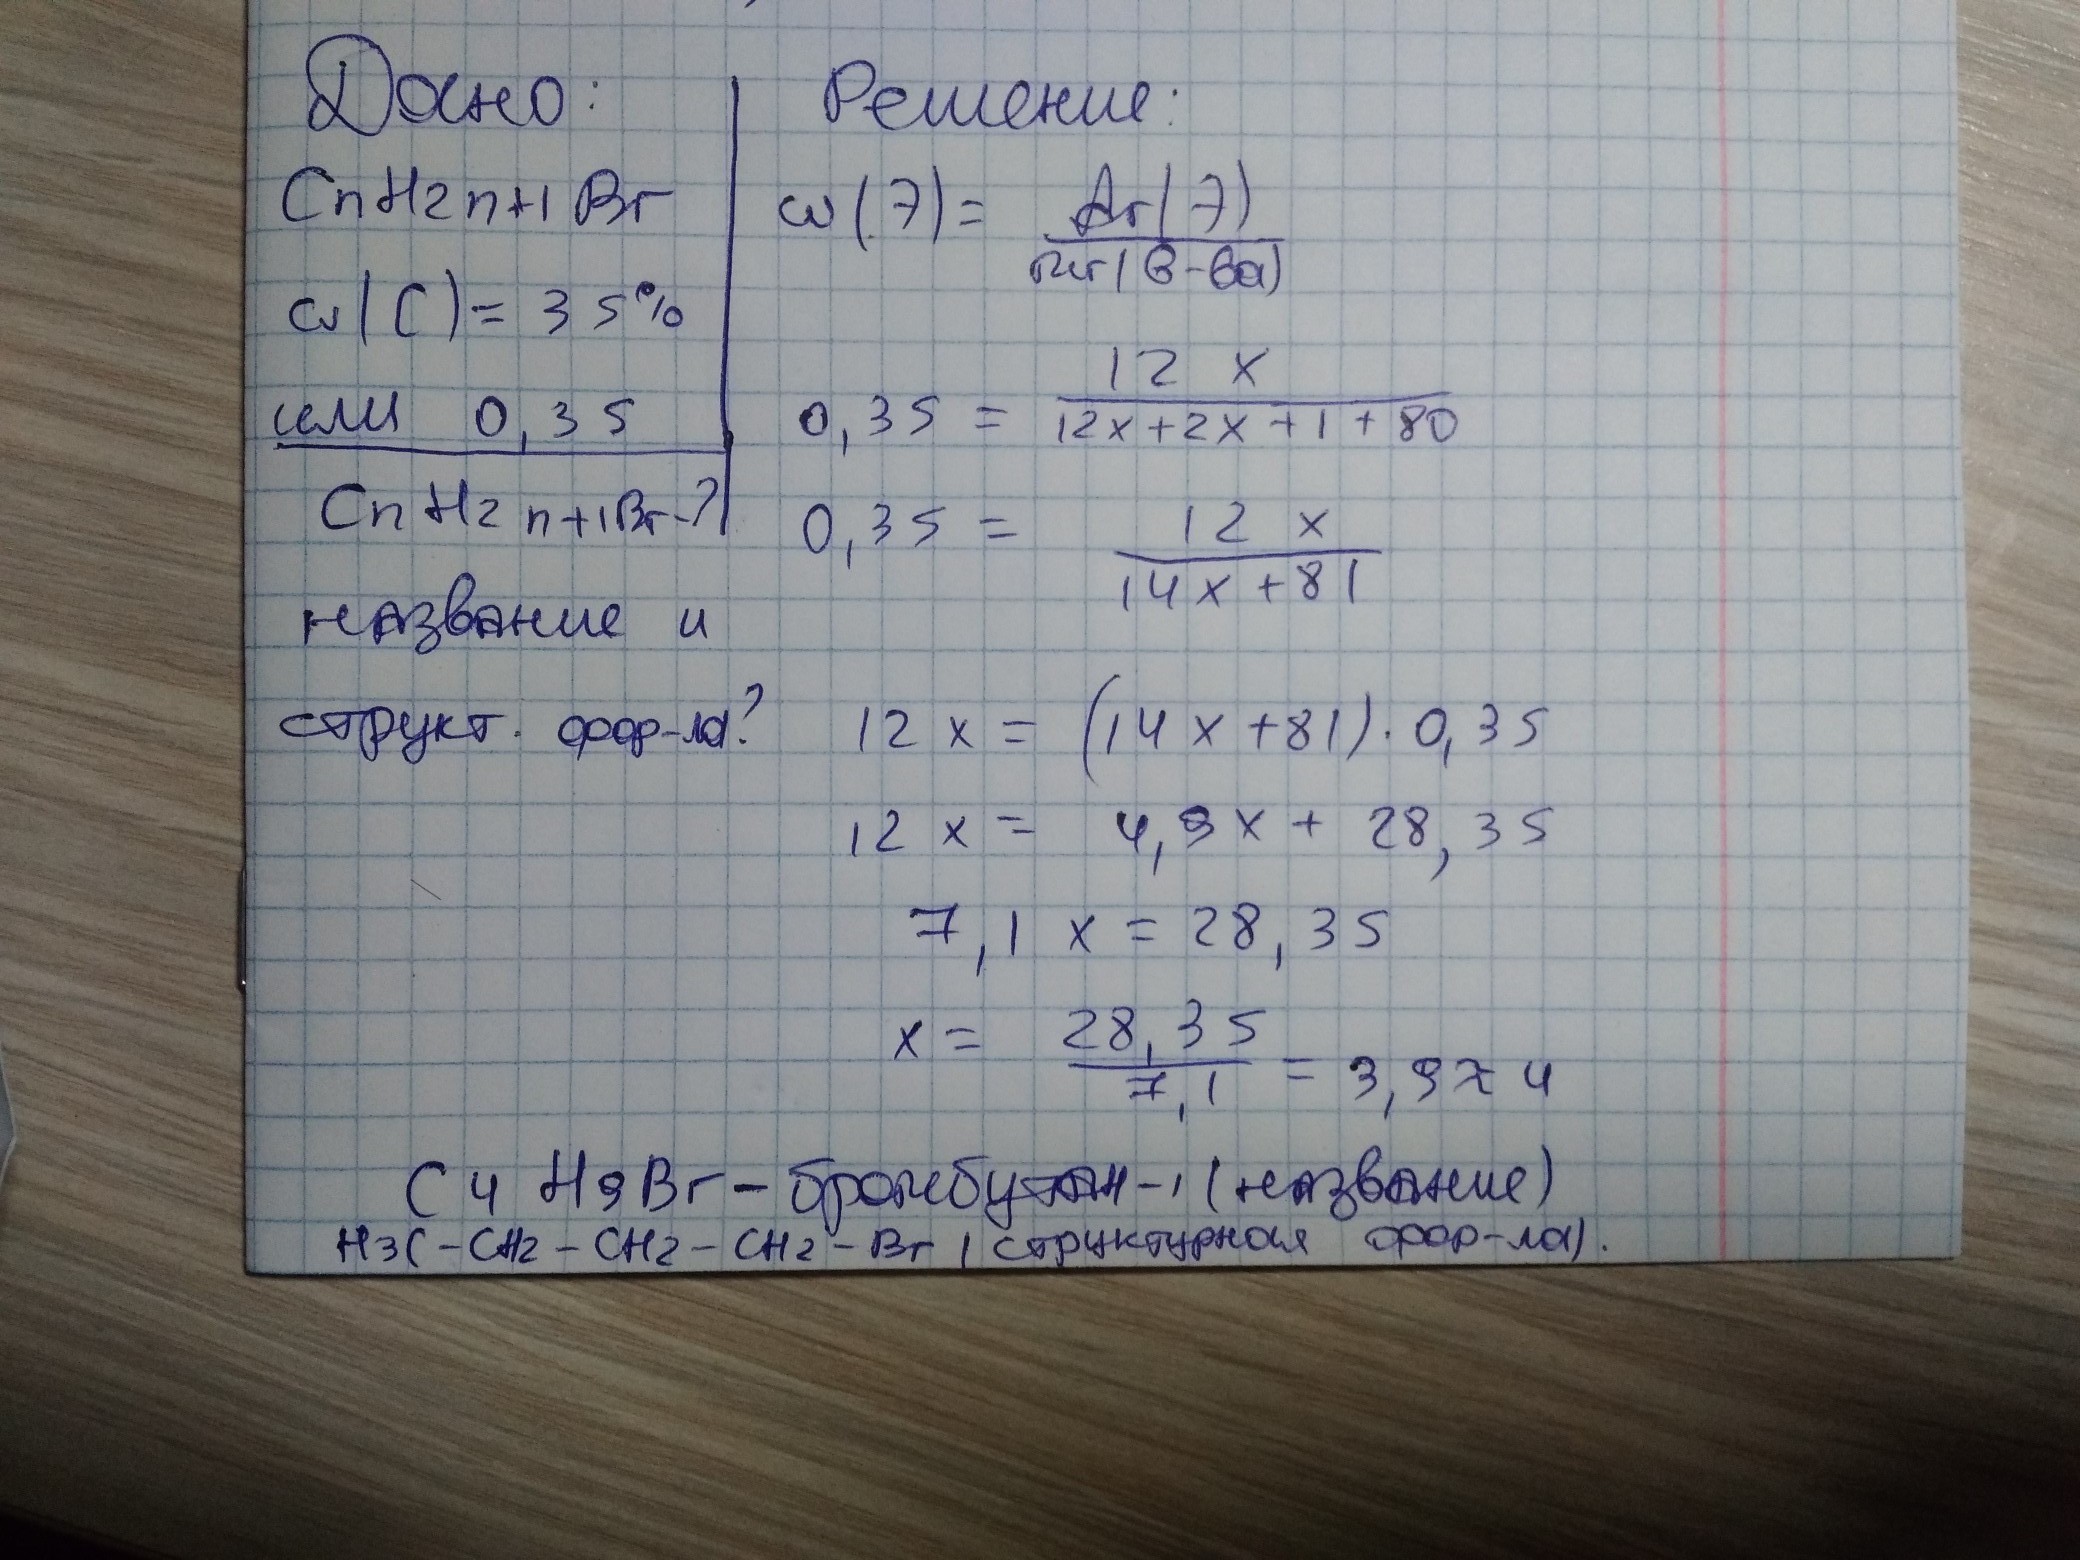 Дано:
CnH2n+1Br
w(C) = 35%
или 0,35
CnH2n+1Br-?
название и
структ. фор-ла?
Решение:
w(Э) = Ar(Э)
Mr(в-ва)
0,35 = 12 x
12x+2x+1+80
0,35 = 12 x
14x+81
12 x = (14 x +81) · 0,35
12 x = 4,9x + 28,35
7,1 x = 28,35
x = 28,35
7,1 = 3,9 ≈ 4
C4H9Br - бромбутан-1 (название)
H3C-CH2-CH2-CH2-Br (структурная фор-ла).